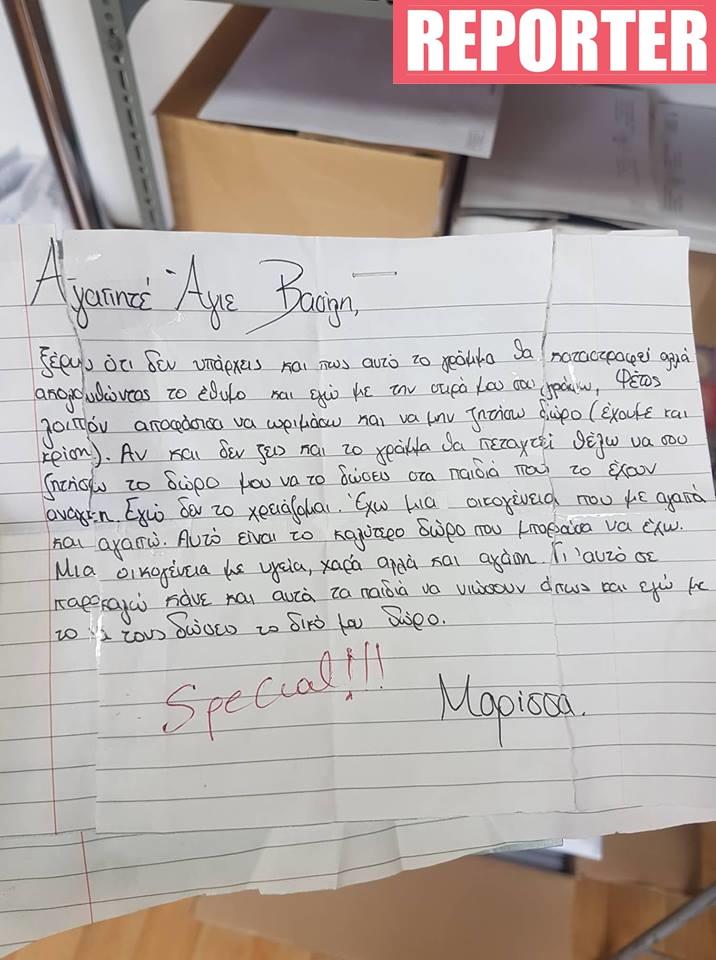 REPORTER
Αγαπητέ Άγιε Βασίλη,
ξέρω ότι δεν υπάρχεις και πως αυτό το γράμμα θα καταστραφεί αλλά
ακολουθώντας το έθιμο και εγώ με την σειρά μου σου γράφω, Φέτος
λοιπόν αποφάσισα να ωριμάσω και να μην ζητήσω δώρο (έχουμε και
κρίση). Αν και δεν ζεις και το γράμμα θα πεταχτεί θέλω να σου
ζητήσω το δώρο μου να το δώσεις στα παιδιά που το έχουν
ανάγκη. Εγώ δεν το χρειάζομαι. Έχω μια οικογένεια που με αγαπά
και αγαπώ. Αυτό είναι το καλύτερο δώρο που μπορούσα να έχω.
Μια οικογένεια με υγεία, χαρά αλλά και αγάπη. Γι'αυτό σε
παρακαλώ κάνε και αυτά τα παιδιά να νιώσουν όπως και εγώ με
το να τους δώσεις το δικό μου δώρο.
Special!!!
Μαρίσσα.